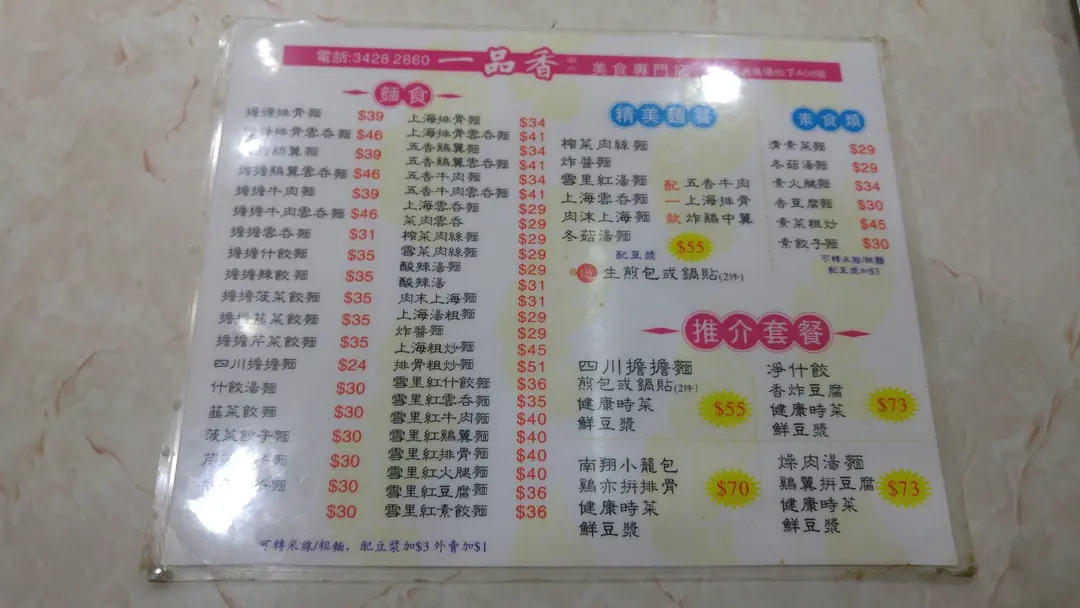 電話:3428 2860 一品香 美食專門店 廣場地下A08號
麵食
擔擔排骨麵 $39
排骨雲呑麵 $46
鷄翼麵 $39
擔擔鷄翼雲呑麵 $46
擔擔牛肉麵 $39
擔擔牛肉雲呑麵 $46
擔擔雲呑麵 $31
擔擔什餃麵 $35
擔擔辣餃麵 $35
擔擔菠菜餃麵 $35
擔擔韮菜餃麵 $35
擔擔芹菜餃麵 $35
四川擔擔麵 $24
什餃湯麵 $30
韮菜餃麵 $30
菠菜餃子麵 $30
芹 麵 $30
麵 $30
$30
上海排骨麵 $34
上海排骨雲呑麵 $41
五香鷄翼麵 $34
五香鷄翼雲呑麵 $41
五香牛肉麵 $34
五香牛肉雲呑麵 $41
上海雲呑麵 $29
菜肉雲呑 $29
榨菜肉絲麵 $29
雪菜肉絲麵 $29
酸辣湯麵 $29
酸辣湯 $31
肉末上海麵 $31
上海湯粗麵 $29
炸醬麵 $29
上海粗炒麵 $45
排骨粗炒麵 $51
雪里紅什餃麵 $36
雪里紅雲呑麵 $35
雪里紅牛肉麵 $40
雪里紅鷄翼麵 $40
雪里紅排骨麵 $40
雪里紅火腿麵 $40
雪里紅豆腐麵 $36
雪里紅素餃麵 $36
可轉米線/粗麵，配豆漿加$3 外賣加$1
精美麵餐
榨菜肉絲麵
炸醬麵
雪里紅湯麵
上海雲呑麵
肉沫上海麵
冬菇湯麵
配一款
五香牛肉
上海排骨
炸鷄中翼
配豆漿
$55
送 生煎包或鍋貼(2件)
素食類
青素菜麵 $29
冬菇湯麵 $29
素火腿麵 $34
香豆腐麵 $30
素菜粗炒 $45
素餃子麵 $30
可轉米麵/粗麵
配豆漿加$3
推介套餐
四川擔擔麵
煎包或鍋貼(2件)
健康時菜
鮮豆漿
$55
淨什餃
香炸豆腐
健康時菜
鮮豆漿
$73
南翔小龍包
鷄亦拼排骨
健康時菜
鮮豆漿
$70
燥肉湯麵
鷄翼拼豆腐
健康時菜
鮮豆漿
$73